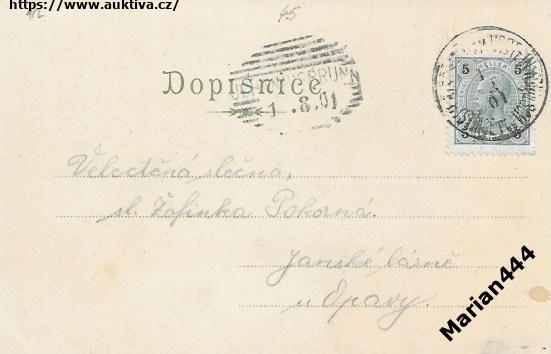 https://www.auktiva.cz/
45
Dopisnice
1.8.01
5 5
Velectěná slečna,
sl. Žofinka Pokorná
Janské lázně
u Opavy.
Marian444